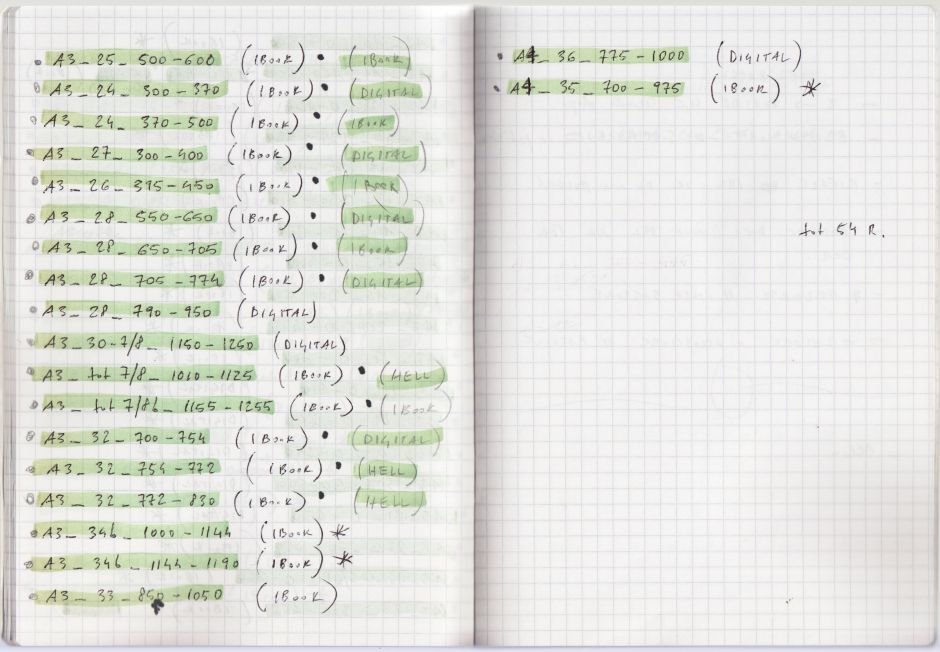 • A3_25_500-600 (IBOOK) • (IBOOK)
• A3_24_300-370 (IBOOK) • (DIGITAL)
• A3_24_370-500 (IBOOK) • (IBOOK)
• A3_27_300-400 (IBOOK) • (DIGITAL)
• A3_26_395-450 (IBOOK) • (IBOOK)
• A3_28_550-650 (IBOOK) • (DIGITAL)
• A3_28_650-705 (IBOOK) • (IBOOK)
• A3_28_705-774 (IBOOK) • (DIGITAL)
• A3_28_790-950 (DIGITAL)
• A3_30-7/8_1150-1250 (DIGITAL)
• A3_tot 7/8_1010-1125 (IBOOK) • (HELL)
• A3_tot 7/8b_1155-1255 (IBOOK) • (IBOOK)
• A3_32_700-754 (IBOOK) • (DIGITAL)
• A3_32_754-772 (IBOOK) • (HELL)
• A3_32_772-830 (IBOOK) • (HELL)
• A3_34b_1000-1144 (IBOOK) *
• A3_34b_1144-1190 (IBOOK) *
• A3_33_850-1050 (IBOOK)
• A4_36_775-1000 (DIGITAL)
• A4_35_700-975 (IBOOK) *
tot 54 R.